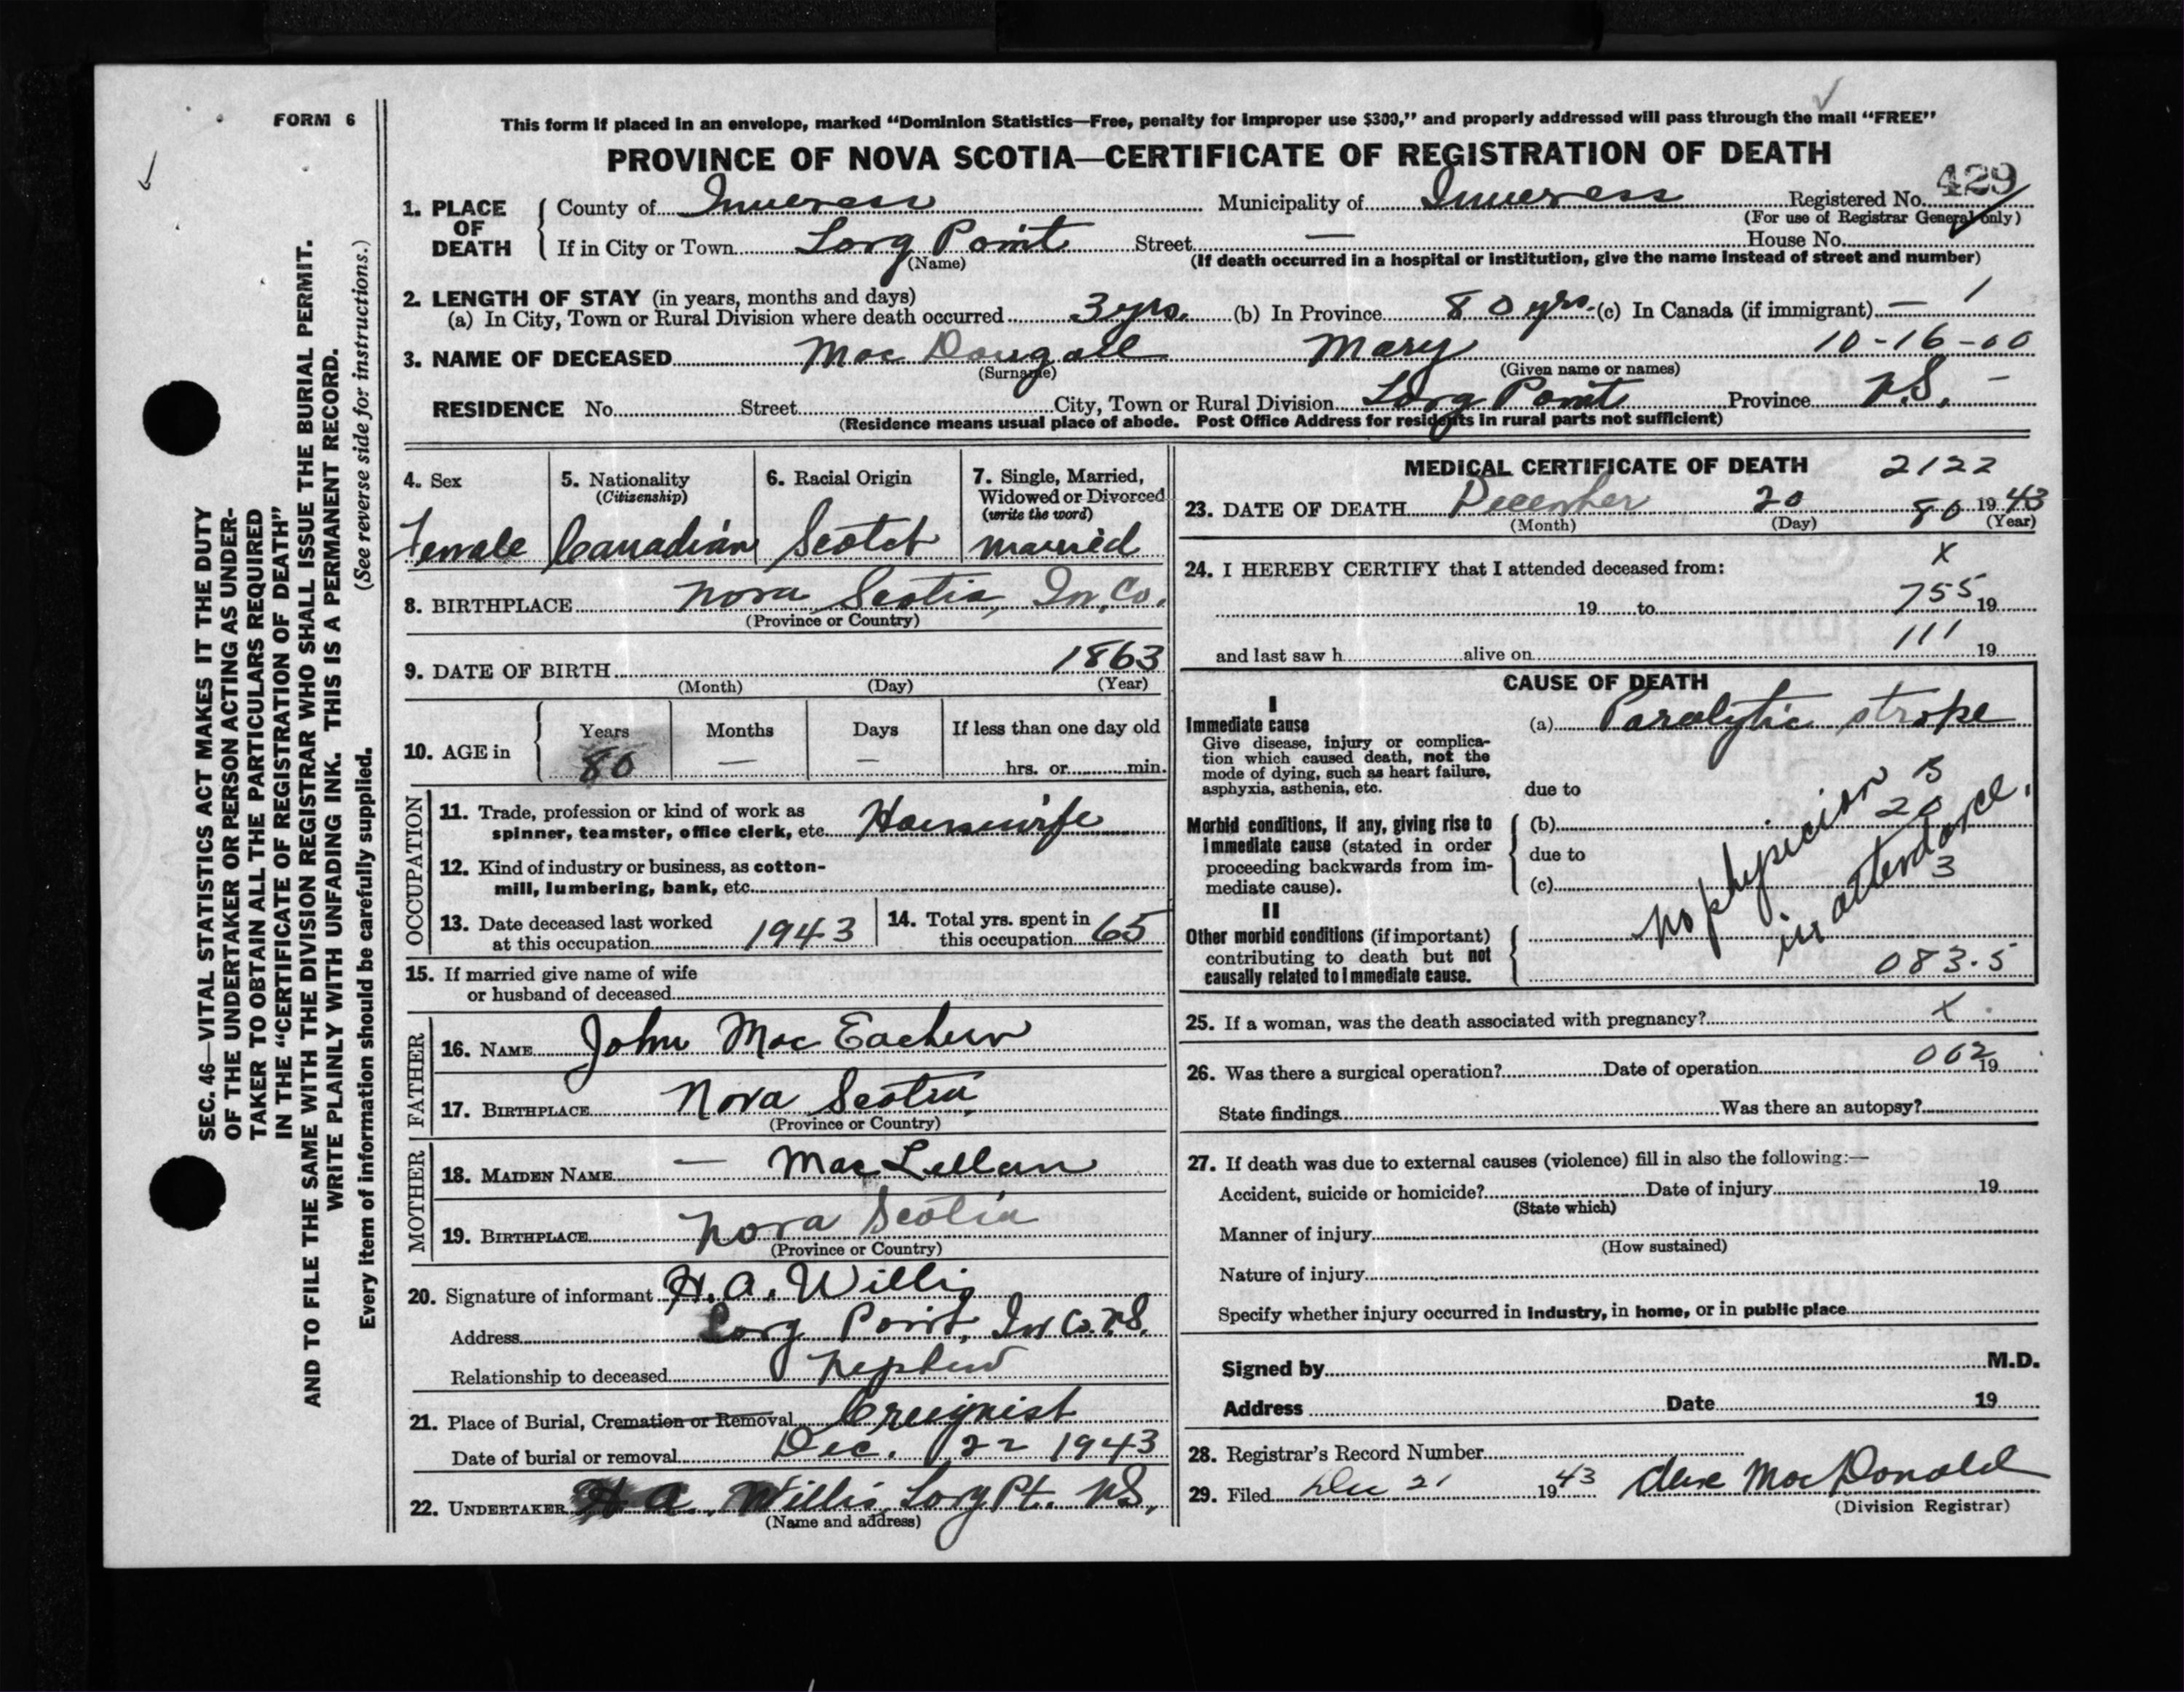 FORM 6
This form if placed in an envelope, marked “Dominion Statistics—Free, penalty for improper use $300,” and properly addressed will pass through the mail “FREE”
PROVINCE OF NOVA SCOTIA—CERTIFICATE OF REGISTRATION OF DEATH
1. PLACE OF DEATH County of Inverness Municipality of Inverness Registered No. 429
(For use of Registrar General only)
If in City or Town Long Point Street — House No.
(Name) (If death occurred in a hospital or institution, give the name instead of street and number)
2. LENGTH OF STAY (in years, months and days)
(a) In City, Town or Rural Division where death occurred 3 yrs. (b) In Province 80 yrs. (c) In Canada (if immigrant) — 1
3. NAME OF DECEASED Mac Dougall Mary 10-16-00
(Surname) (Given name or names)
RESIDENCE No. Street City, Town or Rural Division Long Point Province N.S. —
(Residence means usual place of abode. Post Office Address for residents in rural parts not sufficient)
4. Sex Female
5. Nationality (Citizenship) Canadian
6. Racial Origin Scotch
7. Single, Married, Widowed or Divorced (write the word) Married
8. BIRTHPLACE Nova Scotia, In. Co.
(Province or Country)
9. DATE OF BIRTH 1863
(Month) (Day) (Year)
10. AGE in Years 80 Months — Days — If less than one day old hrs. or min.
OCCUPATION
11. Trade, profession or kind of work as
spinner, teamster, office clerk, etc. Housewife
12. Kind of industry or business, as cotton-
mill, lumbering, bank, etc.
13. Date deceased last worked at this occupation 1943
14. Total yrs. spent in this occupation 65
15. If married give name of wife
or husband of deceased
FATHER
16. NAME John Mac Eachern
17. BIRTHPLACE Nova Scotia
(Province or Country)
MOTHER
18. MAIDEN NAME — Mac Lellan
19. BIRTHPLACE Nova Scotia
(Province or Country)
20. Signature of informant H. A. Willis
Address Long Point, In Co. N.S.
Relationship to deceased Nephew
21. Place of Burial, Cremation or Removal Creignish
Date of burial or removal Dec. 22 1943
22. UNDERTAKER H A Willis, Long Pt. N.S.
(Name and address)
MEDICAL CERTIFICATE OF DEATH 2122
23. DATE OF DEATH December 20 80 1943
(Month) (Day) (Year)
24. I HEREBY CERTIFY that I attended deceased from: X
19 to 755 19
and last saw h alive on 111 19
CAUSE OF DEATH
I
Immediate cause (a) Paralytic stroke
Give disease, injury or complica-
tion which caused death, not the
mode of dying, such as heart failure,
asphyxia, asthenia, etc. due to
Morbid conditions, if any, giving rise to (b)
immediate cause (stated in order
proceeding backwards from im- due to
mediate cause). (c)
No physician in attendance.
20
3
II
Other morbid conditions (if important)
contributing to death but not
causally related to immediate cause. 083.5
25. If a woman, was the death associated with pregnancy? X
26. Was there a surgical operation? Date of operation 062 19
State findings Was there an autopsy?
27. If death was due to external causes (violence) fill in also the following:—
Accident, suicide or homicide? Date of injury 19
(State which)
Manner of injury
(How sustained)
Nature of injury
Specify whether injury occurred in industry, in home, or in public place
Signed by M.D.
Address Date 19
28. Registrar's Record Number
29. Filed Dec 21 1943 MacDonald
(Division Registrar)
SEC. 46—VITAL STATISTICS ACT MAKES IT THE DUTY
OF THE UNDERTAKER OR PERSON ACTING AS UNDER-
TAKER TO OBTAIN ALL THE PARTICULARS REQUIRED
IN THE “CERTIFICATE OF REGISTRATION OF DEATH”
AND TO FILE THE SAME WITH THE DIVISION REGISTRAR WHO SHALL ISSUE THE BURIAL PERMIT.
WRITE PLAINLY WITH UNFADING INK. THIS IS A PERMANENT RECORD.
Every item of information should be carefully supplied. (See reverse side for instructions.)